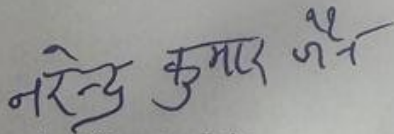 नरेन्द्र कुमार जैन